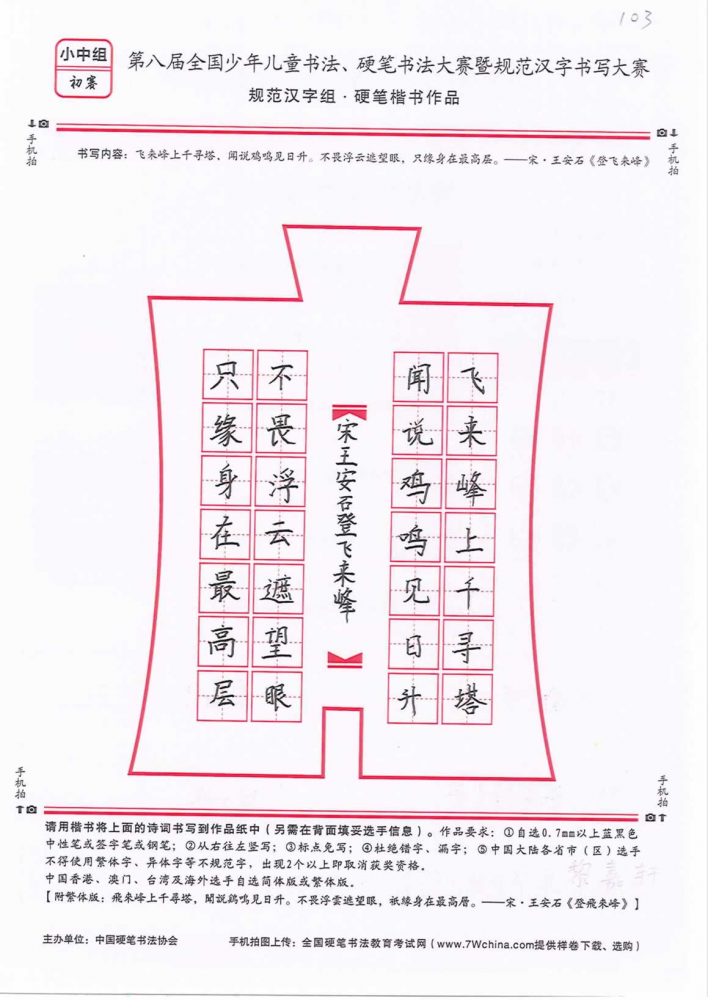 103
小中组
初赛
第八届全国少年儿童书法、硬笔书法大赛暨规范汉字书写大赛
规范汉字组·硬笔楷书作品
手机拍
手机拍
书写内容：飞来峰上千寻塔，闻说鸡鸣见日升。不畏浮云遮望眼，只缘身在最高层。——宋·王安石《登飞来峰》
飞来峰上千寻塔
闻说鸡鸣见日升
宋王安石登飞来峰
不畏浮云遮望眼
只缘身在最高层
手机拍
手机拍
请用楷书将上面的诗词书写到作品纸中（另需在背面填妥选手信息）。作品要求：①自选0.7mm以上蓝黑色
中性笔或签字笔或钢笔；②从右往左竖写；③标点免写；④杜绝错字、漏字；⑤中国大陆各省市（区）选手
不得使用繁体字、异体字等不规范字，出现2个以上即取消获奖资格。
中国香港、澳门、台湾及海外选手自选简体版或繁体版。
【附繁体版：飛來峰上千尋塔，聞說鷄鳴見日昇。不畏浮雲遮望眼，祇緣身在最高層。——宋·王安石《登飛來峰》】
主办单位：中国硬笔书法协会
手机拍图上传：全国硬笔书法教育考试网（www.7Wchina.com提供样卷下载、选购）